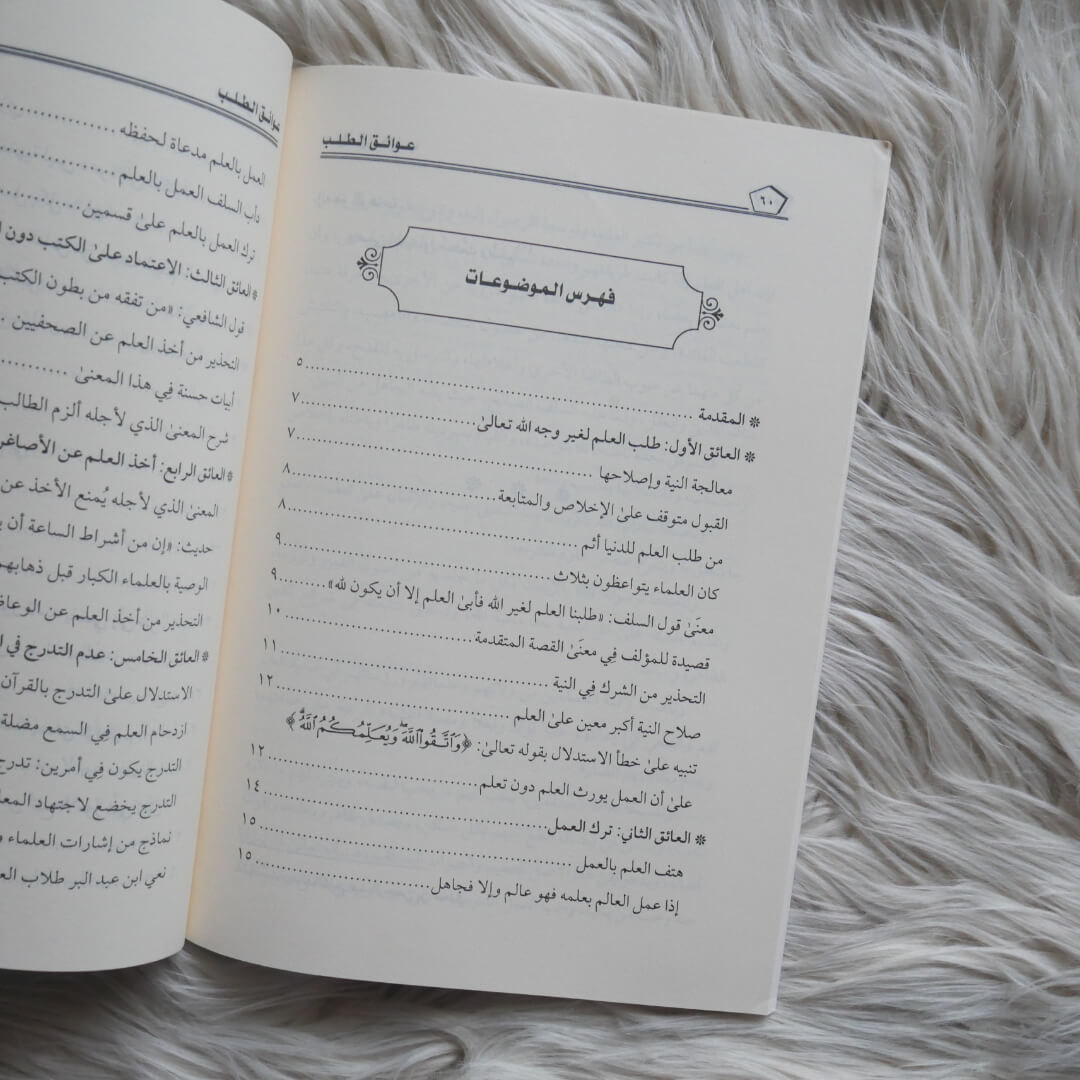 عوائق الطلب
٦٠
فهرس الموضوعات
* المقدمة ................ ٥
* العائق الأول: طلب العلم لغير وجه الله تعالىٰ ................ ٧
معالجة النية وإصلاحها ................ ٧
القبول متوقف علىٰ الإخلاص والمتابعة ................ ٨
من طلب العلم للدنيا أثم ................ ٨
كان العلماء يتواعظون بثلاث ................ ٩
معنَىٰ قول السلف: «طلبنا العلم لغير الله فأبىٰ العلم إلا أن يكون لله» ................ ٩
قصيدة للمؤلف فِي معنَىٰ القصة المتقدمة ................ ١٠
التحذير من الشرك فِي النية ................ ١١
صلاح النية أكبر معين علىٰ العلم ................ ١٢
تنبيه علىٰ خطأ الاستدلال بقوله تعالىٰ: ﴿وَٱتَّقُوا۟ ٱللَّهَ ۖ وَيُعَلِّمُكُمُ ٱللَّهُ﴾
علىٰ أن العمل يورث العلم دون تعلم ................ ١٢
* العائق الثاني: ترك العمل ................ ١٤
هتف العلم بالعمل ................ ١٥
إذا عمل العالم بعلمه فهو عالم وإلا فجاهل ................ ١٥
عوائق الطلب
العمل بالعلم مدعاة لحفظه ................
دأب السلف العمل بالعلم ................
ترك العمل بالعلم علىٰ قسمين ................
* العائق الثالث: الاعتماد علىٰ الكتب دون
قول الشافعي: «من تفقه من بطون الكتب
التحذير من أخذ العلم عن الصحفيين ..
أبيات حسنة فِي هذا المعنىٰ ................
شرح المعنىٰ الذي لأجله ألزم الطالب
* العائق الرابع: أخذ العلم عن الأصاغر
المعنىٰ الذي لأجله يُمنع الأخذ عن
حديث: «إن من أشراط الساعة أن
الوصية بالعلماء الكبار قبل ذهابهم
التحذير من أخذ العلم عن
* العائق الخامس: عدم التدرج في
الاستدلال علىٰ التدرج بالقرآن
ازدحام العلم فِي السمع مضلة
التدرج يكون فِي أمرين: تدرج
التدرج يخضع لاجتهاد
نماذج من إشارات العلماء
نعي ابن عبد البر طلاب